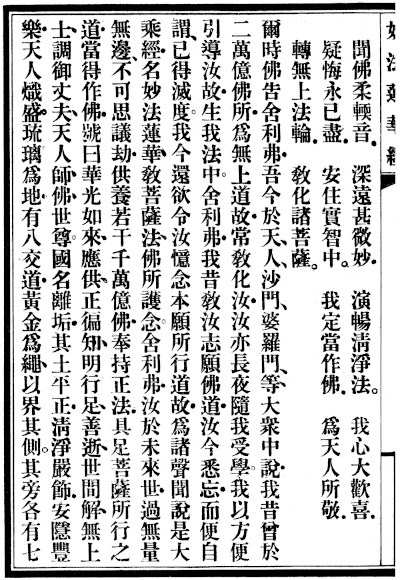 妙法蓮華經
聞佛柔輭音。 深遠甚微妙。 演暢清淨法。 我心大歡喜。
疑悔永已盡。 安住實智中。 我定當作佛。 爲天人所敬。
轉無上法輪。 敎化諸菩薩。
爾時佛告舍利弗。吾今於天人、沙門、婆羅門、等大衆中說。我昔曾於
二萬億佛所。爲無上道故。常敎化汝。汝亦長夜隨我受學。我以方便
引導汝故。生我法中。舍利弗。我昔敎汝志願佛道。汝今悉忘。而便自
謂、已得滅度。我今還欲令汝憶念本願所行道故。爲諸聲聞說是大
乘經。名妙法蓮華。敎菩薩法。佛所護念。舍利弗。汝於未來世。過無量
無邊、不可思議劫。供養若干千萬億佛。奉持正法。具足菩薩所行之
道。當得作佛。號曰華光如來、應供、正徧知、明行足、善逝、世間解、無上
士、調御丈夫、天人師、佛世尊。國名離垢。其土平正。清淨嚴飾。安隱豐
樂。天人熾盛。琉璃爲地。有八交道。黃金爲繩。以界其側。其旁各有七